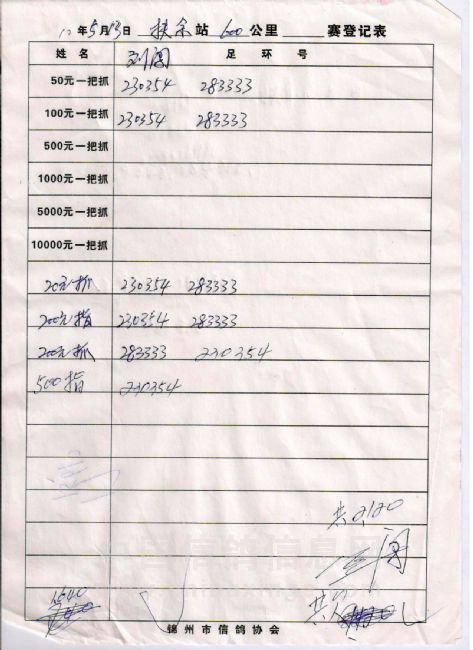 12年5月13日 扶余站 600公里______赛登记表
姓名 刘阁 足环号
50元一把抓 230354 283333
100元一把抓 230354 283333
500元一把抓
1000元一把抓
5000元一把抓
10000元一把抓
20元抓 230354 283333
200元指 230354 283333
200元抓 283333 230354
500指 230354
共2120
信鸽信息网
锦州市信鸽协会